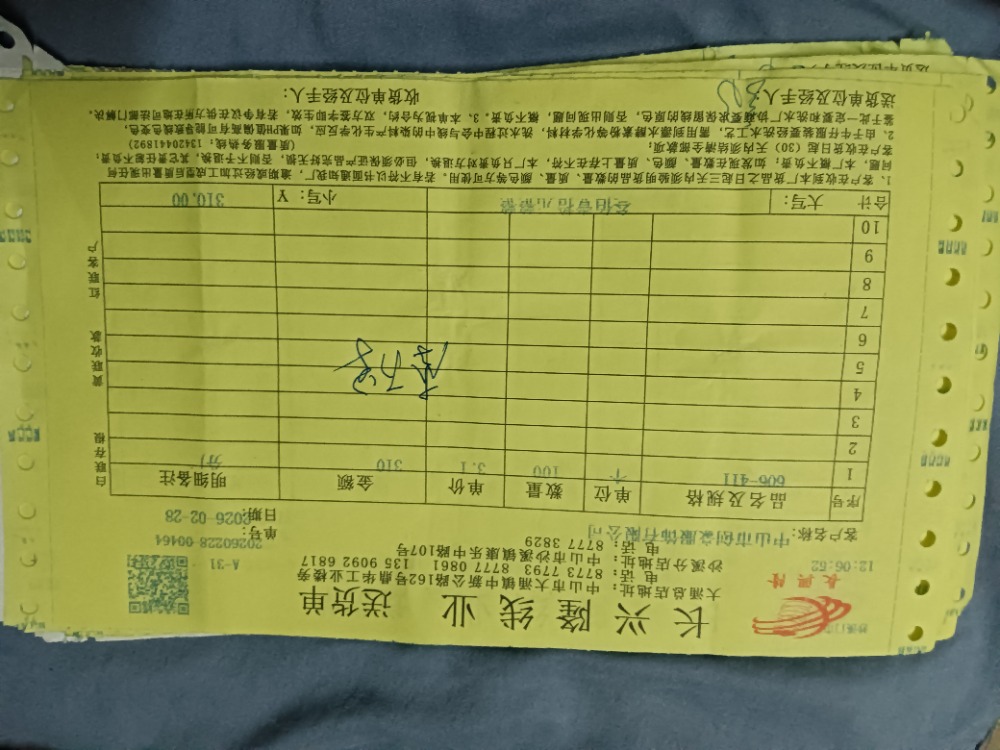 长兴隆线业 送货单
长兴隆
A-31
大涌总店地址：中山市大涌镇中新公路162号鼎华工业楼旁
电话：8773 7793 8777 0861 135 9092 6817
沙溪分店地址：中山市沙溪镇康乐中路107号
电话：8777 3829
12:06:52
单号：20260228-00464
客户名称：中山市创 服饰有限公司
日期：2026-02-28
序号 品名及规格 单位 数量 单价 金额 明细备注
1 606-411 个 100 3.1 310
2
3
4
5
6
7
8
9
10
合计 大写：叁佰壹拾元 小写：￥ 310.00
白联存根 黄联收款 红联客户
1、客户在收到本厂货品之日起三天内须验明货品的数量、质量、颜色等方可使用，若有不符以书面通知我厂，逾期或经过加工成型后质量出现任何
问题，本厂概不负责；如发现在数量、颜色、质量上存在不符，本厂只负责对方退换，但必须保证产品完好无损，否则不予退换，其它责任概不负责；
客户在收货日起（30）天内须结清全部款项； （质量服务热线：13420441892）
2、由于牛仔服装要经洗水工艺，需用到漂水酵素粉等化学材料，洗水过程中会与线中的染料产生化学反应，如果PH值偏高有可能导致线色变色，
鉴于此一定要和洗水厂协商要求保留线的原色，否则出现问题，概不负责，3、本单视为合约，双方签字即生效，若有争议在我方所在地司法部门解决。
送货单位及经手人： 收货单位及经手人：